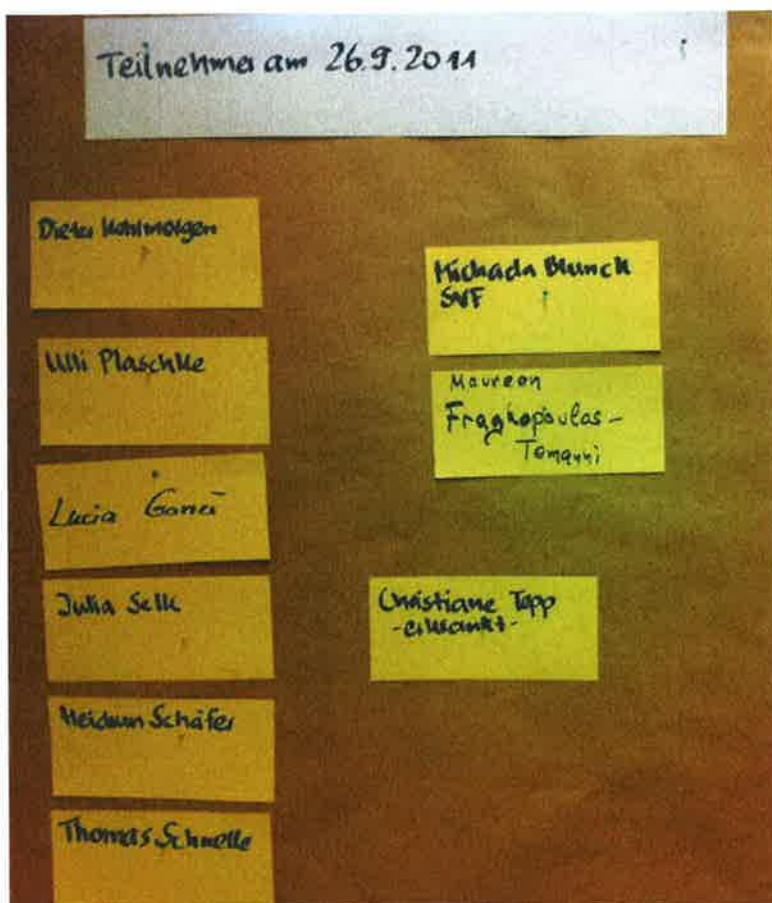 Teilnehmer am 26.9.2011
Dieter Kohlmorgen
Ulli Plaschke
Lucia
Julia Selk
Heidrun Schäfer
Thomas Schnelle
Michaela Blunck
SVF
Maureen
Fragkopoulos-
Christiane Topp
-erkrankt-